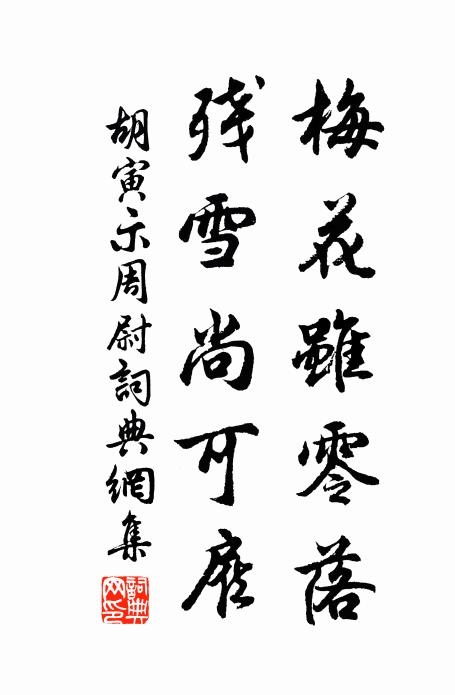 梅花雖零落
残雪尚可
胡寅示周尉詞典網集
詞典網印